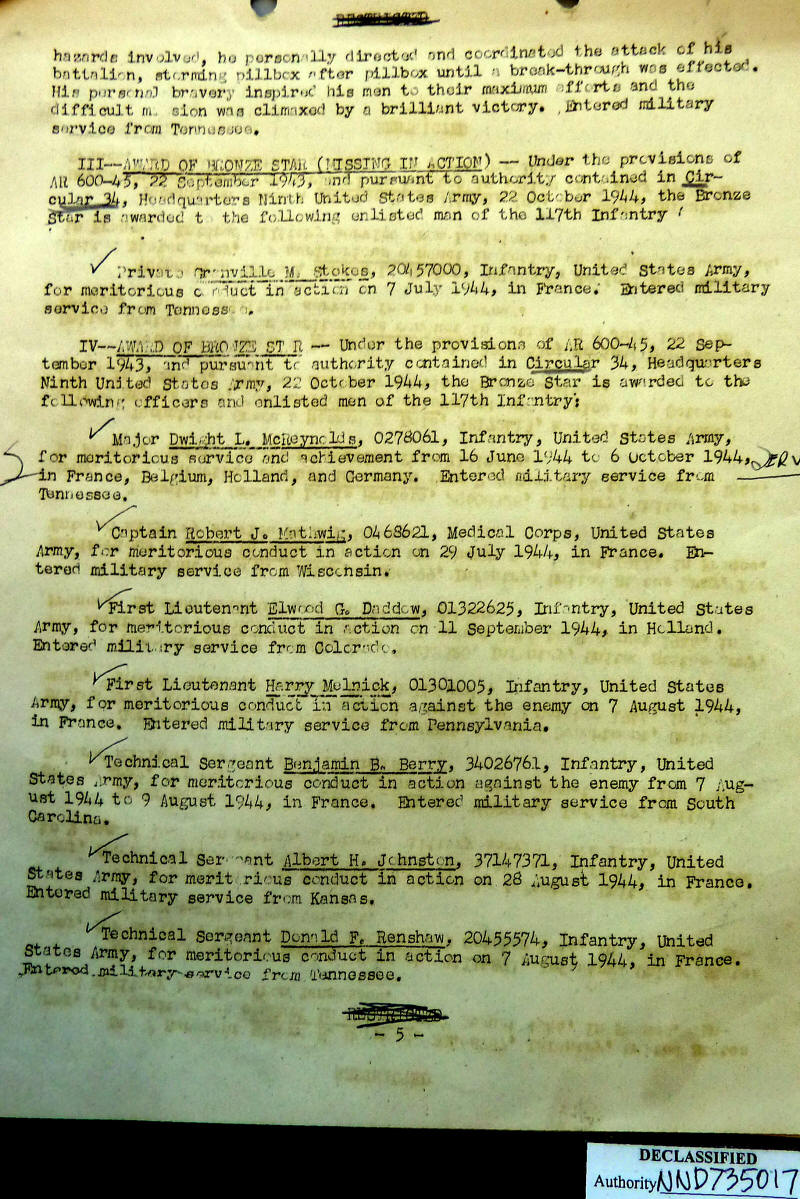 hazards involved, he personally directed and coordinated the attack of his
battalion, storming pillbox after pillbox until a break-through was effected.
His personal bravery inspired his men to their maximum efforts and the
difficult mission was climaxed by a brilliant victory. Entered military
service from Tennessee.
III--AWARD OF BRONZE STAR (MISSING IN ACTION) -- Under the provisions of
AR 600-45, 22 September 1943, and pursuant to authority contained in Cir-
cular 34, Headquarters Ninth United States Army, 22 October 1944, the Bronze
Star is awarded to the following enlisted man of the 117th Infantry
Private Granville M. Stokes, 20457000, Infantry, United States Army,
for meritorious conduct in action on 7 July 1944, in France. Entered military
service from Tennessee.
IV--AWARD OF BRONZE STAR -- Under the provisions of AR 600-45, 22 Sep-
tember 1943, and pursuant to authority contained in Circular 34, Headquarters
Ninth United States Army, 22 October 1944, the Bronze Star is awarded to the
following officers and enlisted men of the 117th Infantry:
Major Dwight L. McReynolds, 0278061, Infantry, United States Army,
for meritorious service and achievement from 16 June 1944 to 6 October 1944,
in France, Belgium, Holland, and Germany. Entered military service from
Tennessee.
Captain Robert J. Mathwig, 0468621, Medical Corps, United States
Army, for meritorious conduct in action on 29 July 1944, in France. En-
tered military service from Wisconsin.
First Lieutenant Elwood G. Daddow, 01322625, Infantry, United States
Army, for meritorious conduct in action on 11 September 1944, in Holland.
Entered military service from Colorado.
First Lieutenant Harry Melnick, 01301005, Infantry, United States
Army, for meritorious conduct in action against the enemy on 7 August 1944,
in France. Entered military service from Pennsylvania.
Technical Sergeant Benjamin B. Berry, 34026761, Infantry, United
States Army, for meritorious conduct in action against the enemy from 7 Aug-
ust 1944 to 9 August 1944, in France. Entered military service from South
Carolina.
Technical Sergeant Albert H. Johnston, 37147371, Infantry, United
States Army, for meritorious conduct in action on 28 August 1944, in France.
Entered military service from Kansas.
Technical Sergeant Donald F. Renshaw, 20455574, Infantry, United
States Army, for meritorious conduct in action on 7 August 1944, in France.
Entered military service from Tennessee.
- 5 -
DECLASSIFIED
Authority NND735017